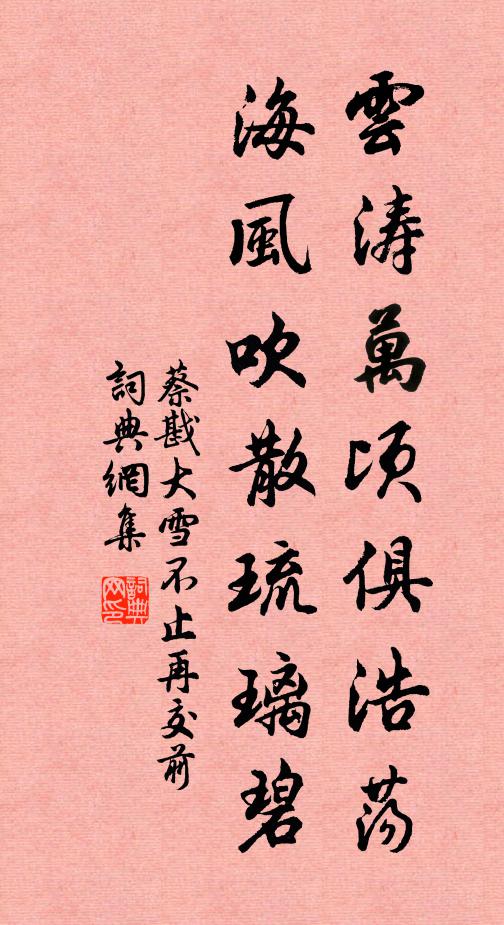 雲濤萬頃俱浩蕩
海風吹散琉璃碧
蔡戡大雪不止再交前
詞典網集
詞典
网印